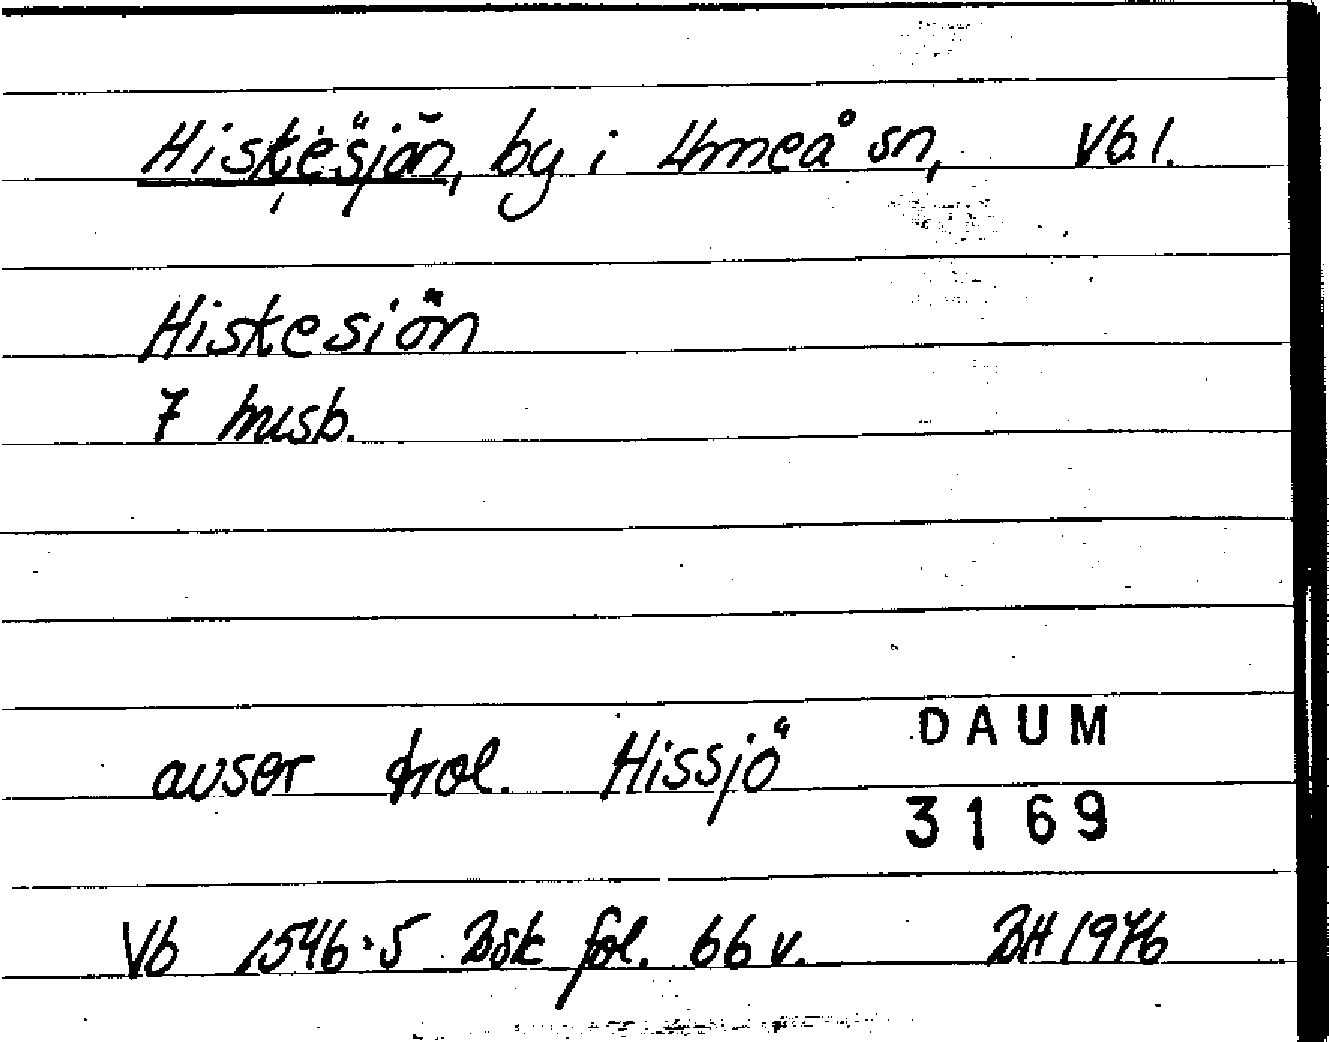 Hiskesjön, by i Umeå sn, Vb l.
Hiskesiön
7 husb.
avser trol. Hissjö
DAUM
3169
Vb 1546:5 Bsk fol. 66 v. BH 1976